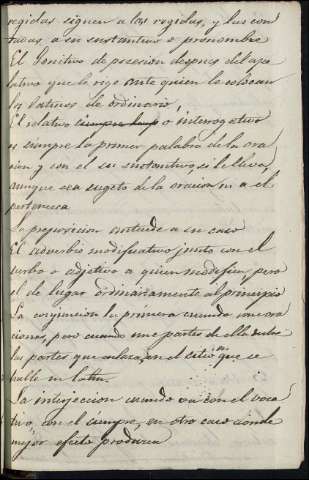 regidas siguen a las regidas, y las con
a su sustantivo o pronombre
El Genitivo de posesion despues del ape
lativo que le rige ante quien lo colocan
los latinos de ordinario,
El relativo siempre o interrogativo
es siempre la primer palabra de la ora
cion y con el su sustantivo, si le lleva,
aunque sea sugeto de la oracion ni a el
pertenezca
La preposicion antecede a su caso
El adverbio modificativo junto con el
verbo o adjetivo a quien modifica, pero
el de lugar ordinariamente al principio
La conjuncion la primera cuando une ora
ciones, pero cuando une partes de ella entre
las partes que enlaza, en el sitio en que se
halle en latin.
La interjeccion cuando va con el voca
tivo, con el siempre, en otro caso donde
mejor efecto produzca